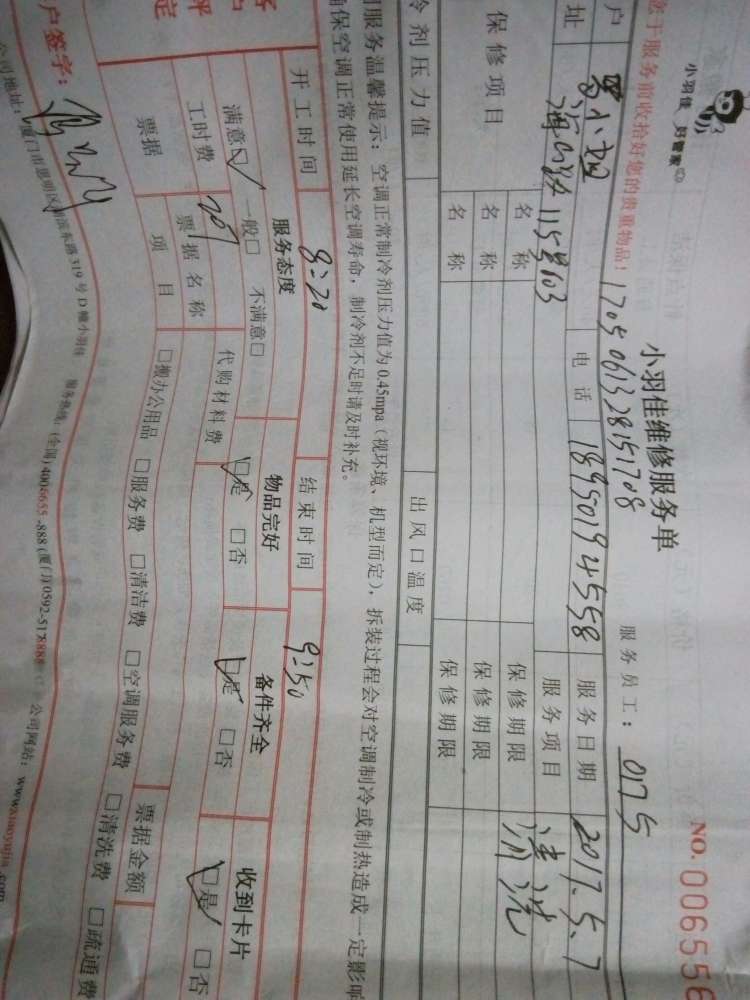 小羽佳 好管家
小羽佳维修服务单
NO. 006556
您于服务前收拾好您的贵重物品!
1705061328151708
服务员工: 0175
户 小姐 电话 18950194558 服务日期 2017.5.7
址 115号103 服务项目 清洗
保修项目 名称 保修期限
名称 保修期限
名称 保修期限
冷剂压力值 出风口温度
服务温馨提示:空调正常制冷剂压力值为0.45mpa(视环境、机型而定),拆装过程会对空调制冷或制热造成一定影响
保空调正常使用延长空调寿命,制冷剂不足时请及时补充。
开工时间 8:20 结束时间 9:50
服务态度 物品完好 备件齐全 收到卡片
满意☑ 一般□ 不满意□ ☑是 □否 ☑是 □否 ☑是 □否
工时费 代购材料费
票据 票据名称 票据金额
项目 □搬办公用品 □服务费 □清洁费 □空调服务费 □清洗费 □疏通费
户签字:
公司地址:厦门市思明区湖滨东路319号D幢小羽佳 服务热线:(全国)4006655-888(厦门)0592-5178888 公司网站:www.xiaoyujia.com